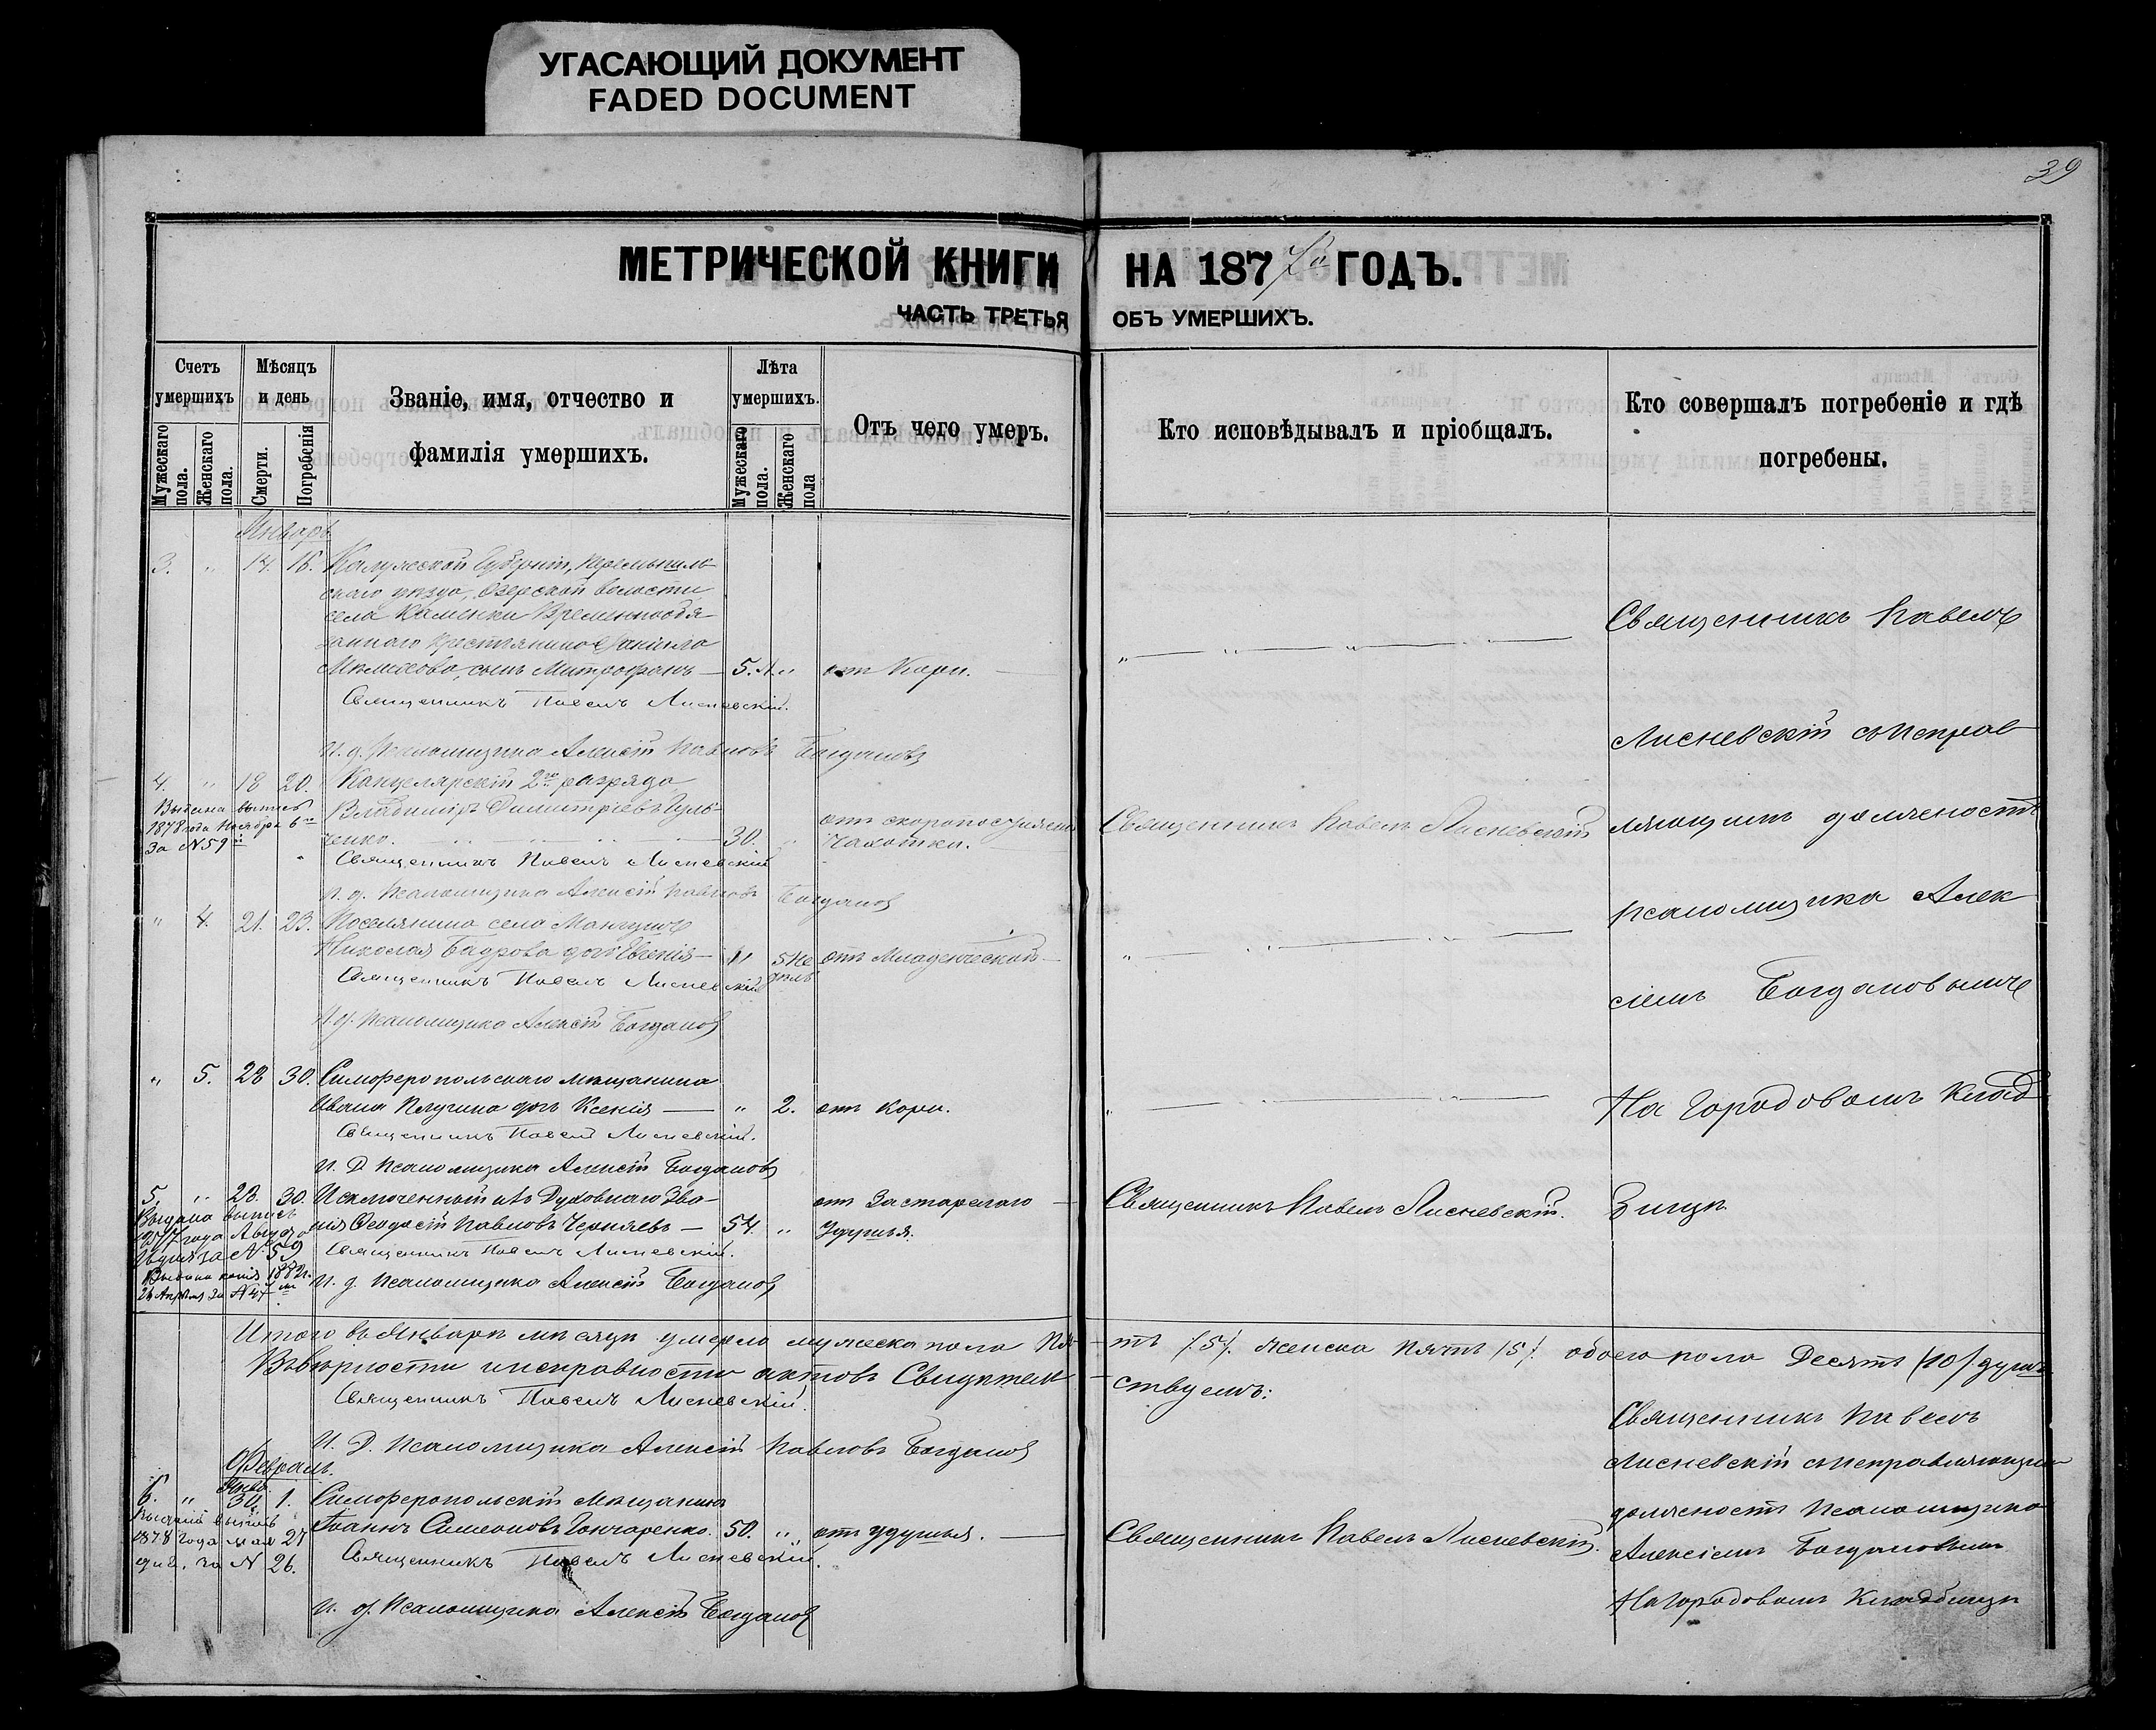 УГАСАЮЩИЙ ДОКУМЕНТ
FADED DOCUMENT
39
МЕТРИЧЕСКОЙ КНИГИ НА 1877й ГОДЪ.
ЧАСТЬ ТРЕТЬЯ ОБЪ УМЕРШИХЪ.
Счетъ умершихъ
Мужескаго пола.
Женскаго пола.
Мѣсяцъ и день
Смерти.
Погребенія
Званіе, имя, отчество и фамилія умершихъ.
Лѣта умершихъ.
Мужескаго пола.
Женскаго пола
Отъ чего умеръ.
Кто исповѣдывалъ и пріобщалъ.
Кто совершалъ погребеніе и гдѣ погребены.
Январь
3. " 14. 16. Калужской Губерніи, Перемышль-
скаго уѣзда, Озерской волости
села Каменки Временнообя-
заннаго крестьянина
сынъ Митрофанъ — 5. л. " отъ Кори.
Священникъ Павелъ Лисневскій.
и. д. Псаломщика Алексій Павловъ Богдановъ
4. " 18 20. Канцелярскій 2го разряда
Владиміръ Димитріевъ
ченко. 30. " отъ скоропостижной
Чахотки.
Выдана выпись
1878 года Ноября 6го
За N 59й
Священникъ Павелъ Лисневскій
Священникъ Павелъ Лисневскій
и. д. Псаломщика Алексій Павловъ Богдановъ
" 4. 21. 23. Поселянина села Мангушъ
Николая Бадрова дочь Евгенія — " 5 Не
дѣль
отъ Младенческой —
Священникъ Павелъ Лисневскій
И. д. Псаломщика Алексій Богдановъ
" 5. 28 30. Симферопольскаго мѣщанина
Ивана дочь Ксенія — " 2. отъ кори.
Священникъ Павелъ Лисневскій.
И. Д. Псаломщика Алексій Богдановъ
5. " 28. 30. Исключенный изъ Духовнаго Зва-
нія Феодосій Павловъ Черняевъ — 54. " отъ Застарелаго —
Удушья.
Священникъ Павелъ Лисневскій.
Выдана выпись
1877 года Августа
за N. 59
Выдана копія 1882 г.
26 Апрѣля за N 47
Священникъ Павелъ Лисневскій.
и. д. Псаломщика Алексій Богдановъ
Священникъ Павелъ
Лисневскій съ исправ-
ляющимъ должность
псаломщика Алек-
сіемъ Богдановымъ
На Городовомъ Клад-
бищѣ
Итого въ Январѣ мѣсяцѣ умерло мужеска пола Пя-ть /5/. женска Пять /5/. обоего пола Десять /10/ душъ
Въ вѣрности и исправности актовъ Свидѣтель-ствуемъ:
Священникъ Павелъ Лисневскій.
И. Д. Псаломщика Алексій Павловъ Богдановъ
Февраль.
Янва.
6. " 30. 1. Симферопольскій Мѣщанинъ
Іоаннъ Симеоновъ Гончаренко. 50. " отъ удушья. —
Священникъ Павелъ Лисневскій.
Выдана выпись
1878 года мая 27
дня. за N 26.
Священникъ Павелъ Лисневскій.
и. д. Псаломщика Алексій Богдановъ
Священникъ Павелъ
Лисневскій съ исправляющимъ
должность Псаломщика
Алексіемъ Богдановымъ
На городовомъ Кладбищѣ